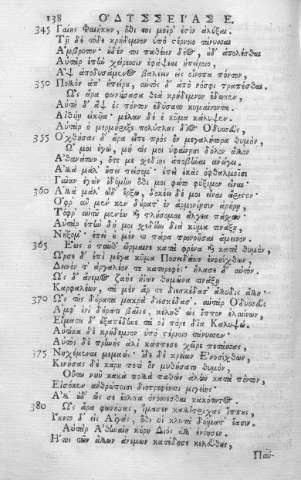 138 ΟΔΥΣΣΕΙΑΣ Ε.
345 Γαίης Φαιήκων, ὅθι τοι μοῖρ' ἐστὶν ἀλύξαι.
Τῇ δὲ τόδε κρήδεμνον ὑπὸ στέρνοιο τανύσσαι
Ἄμβροτον· οὐδέ τί τοι παθέειν δέος, οὐδ' ἀπολέσθαι.
Αὐτὰρ ἐπὴν χείρεσσιν ἐφάψεαι ἠπείροιο,
Ἂψ ἀπολυσάμενος βαλέειν εἰς οἴνοπα πόντον,
350 Πολλὸν ἀπ' ἠπείρου, αὐτὸς δ' ἀπὸ νόσφι τραπέσθαι.
Ὣς ἄρα φωνήσασα θεὰ κρήδεμνον ἔδωκεν,
Αὐτὴ δ' ἂψ ἐς πόντον ἐδύσατο κυμαίνοντα
Αἰθυίῃ εἰκυῖα· μέλαν δέ ἑ κῦμα κάλυψεν.
Αὐτὰρ ὁ μερμήριξε πολύτλας δῖος Ὀδυσσεύς,
355 Ὀχθήσας δ' ἄρα εἶπε πρὸς ὃν μεγαλήτορα θυμόν,
Ὤ μοι ἐγώ, μή τίς μοι ὑφαίνῃσι δόλον ἄλλον
Ἀθανάτων, ὅτε με σχεδίης ἀποβῆναι ἀνώγει.
Ἀλλὰ μάλ' οὔπω πείσομ'· ἐπεὶ ἑκὰς ὀφθαλμοῖσι
Γαῖαν ἐγὼν ἰδόμην ὅθι μοι φάτο φύξιμον εἶναι·
360 Ἀλλὰ μάλ' ὧδ' ἔρξω, δοκέει δέ μοι εἶναι ἄριστον·
Ὄφρ' ἂν μέν κεν δούρατ' ἐν ἁρμονίῃσιν ἀρήρῃ,
Τόφρ' αὐτοῦ μενέω καὶ τλήσομαι ἄλγεα πάσχων.
Αὐτὰρ ἐπὴν δή μοι σχεδίην διὰ κῦμα τινάξῃ,
Νήξομ'· ἐπεὶ οὐ μέν τι πάρα προνοῆσαι ἄμεινον.
365 Ἕως ὁ ταῦθ' ὥρμαινε κατὰ φρένα καὶ κατὰ θυμόν,
Ὦρσε δ' ἐπὶ μέγα κῦμα Ποσειδάων ἐνοσίχθων,
Δεινόν τ' ἀργαλέον τε κατηρεφές· ἤλασε δ' αὐτόν.
Ὡς δ' ἄνεμος ζαὴς ἠΐων θημῶνα τινάξῃ
Καρφαλέων, τὰ μὲν ἄρ τε διεσκέδασ' ἄλλυδις ἄλλῃ·
370 Ὣς τῆς δούρατα μακρὰ διεσκέδασ'. αὐτὰρ Ὀδυσσεὺς
Ἀμφ' ἑνὶ δούρατι βαῖνε, κέληθ' ὡς ἵππον ἐλαύνων,
Εἵματα δ' ἐξαπέδυνε τά οἱ πόρε δῖα Καλυψώ.
Αὐτίκα δὲ κρήδεμνον ὑπὸ στέρνοιο τάνυσσεν,
Αὐτὸς δὲ πρηνὴς ἁλὶ κάππεσε χεῖρε πετάσσας,
375 Νηχέμεναι μεμαώς. Ἴδε δὲ κρείων Ἐνοσίχθων,
Κινήσας δὲ κάρη ποτὶ ὃν μυθήσατο θυμόν,
Οὕτω νῦν κακὰ πολλὰ παθὼν ἀλόω κατὰ πόντον,
Εἰσόκεν ἀνθρώποισι διοτρεφέεσσι μιγείης·
Ἀλλ' οὐδ' ὥς σε ἔολπα ὀνόσσεσθαι κακότητος.
380 Ὣς ἄρα φωνήσας, ἵμασεν καλλίτριχας ἵππους,
Ἵκετο δ' εἰς Αἰγάς, ὅθι οἱ κλυτὰ δώματ' ἔασιν.
Αὐτὰρ Ἀθηναίη κούρη Διὸς ἄλλ' ἐνόησεν.
Ἤτοι τῶν ἄλλων ἀνέμων κατέδησε κελεύθους,
Παύ-